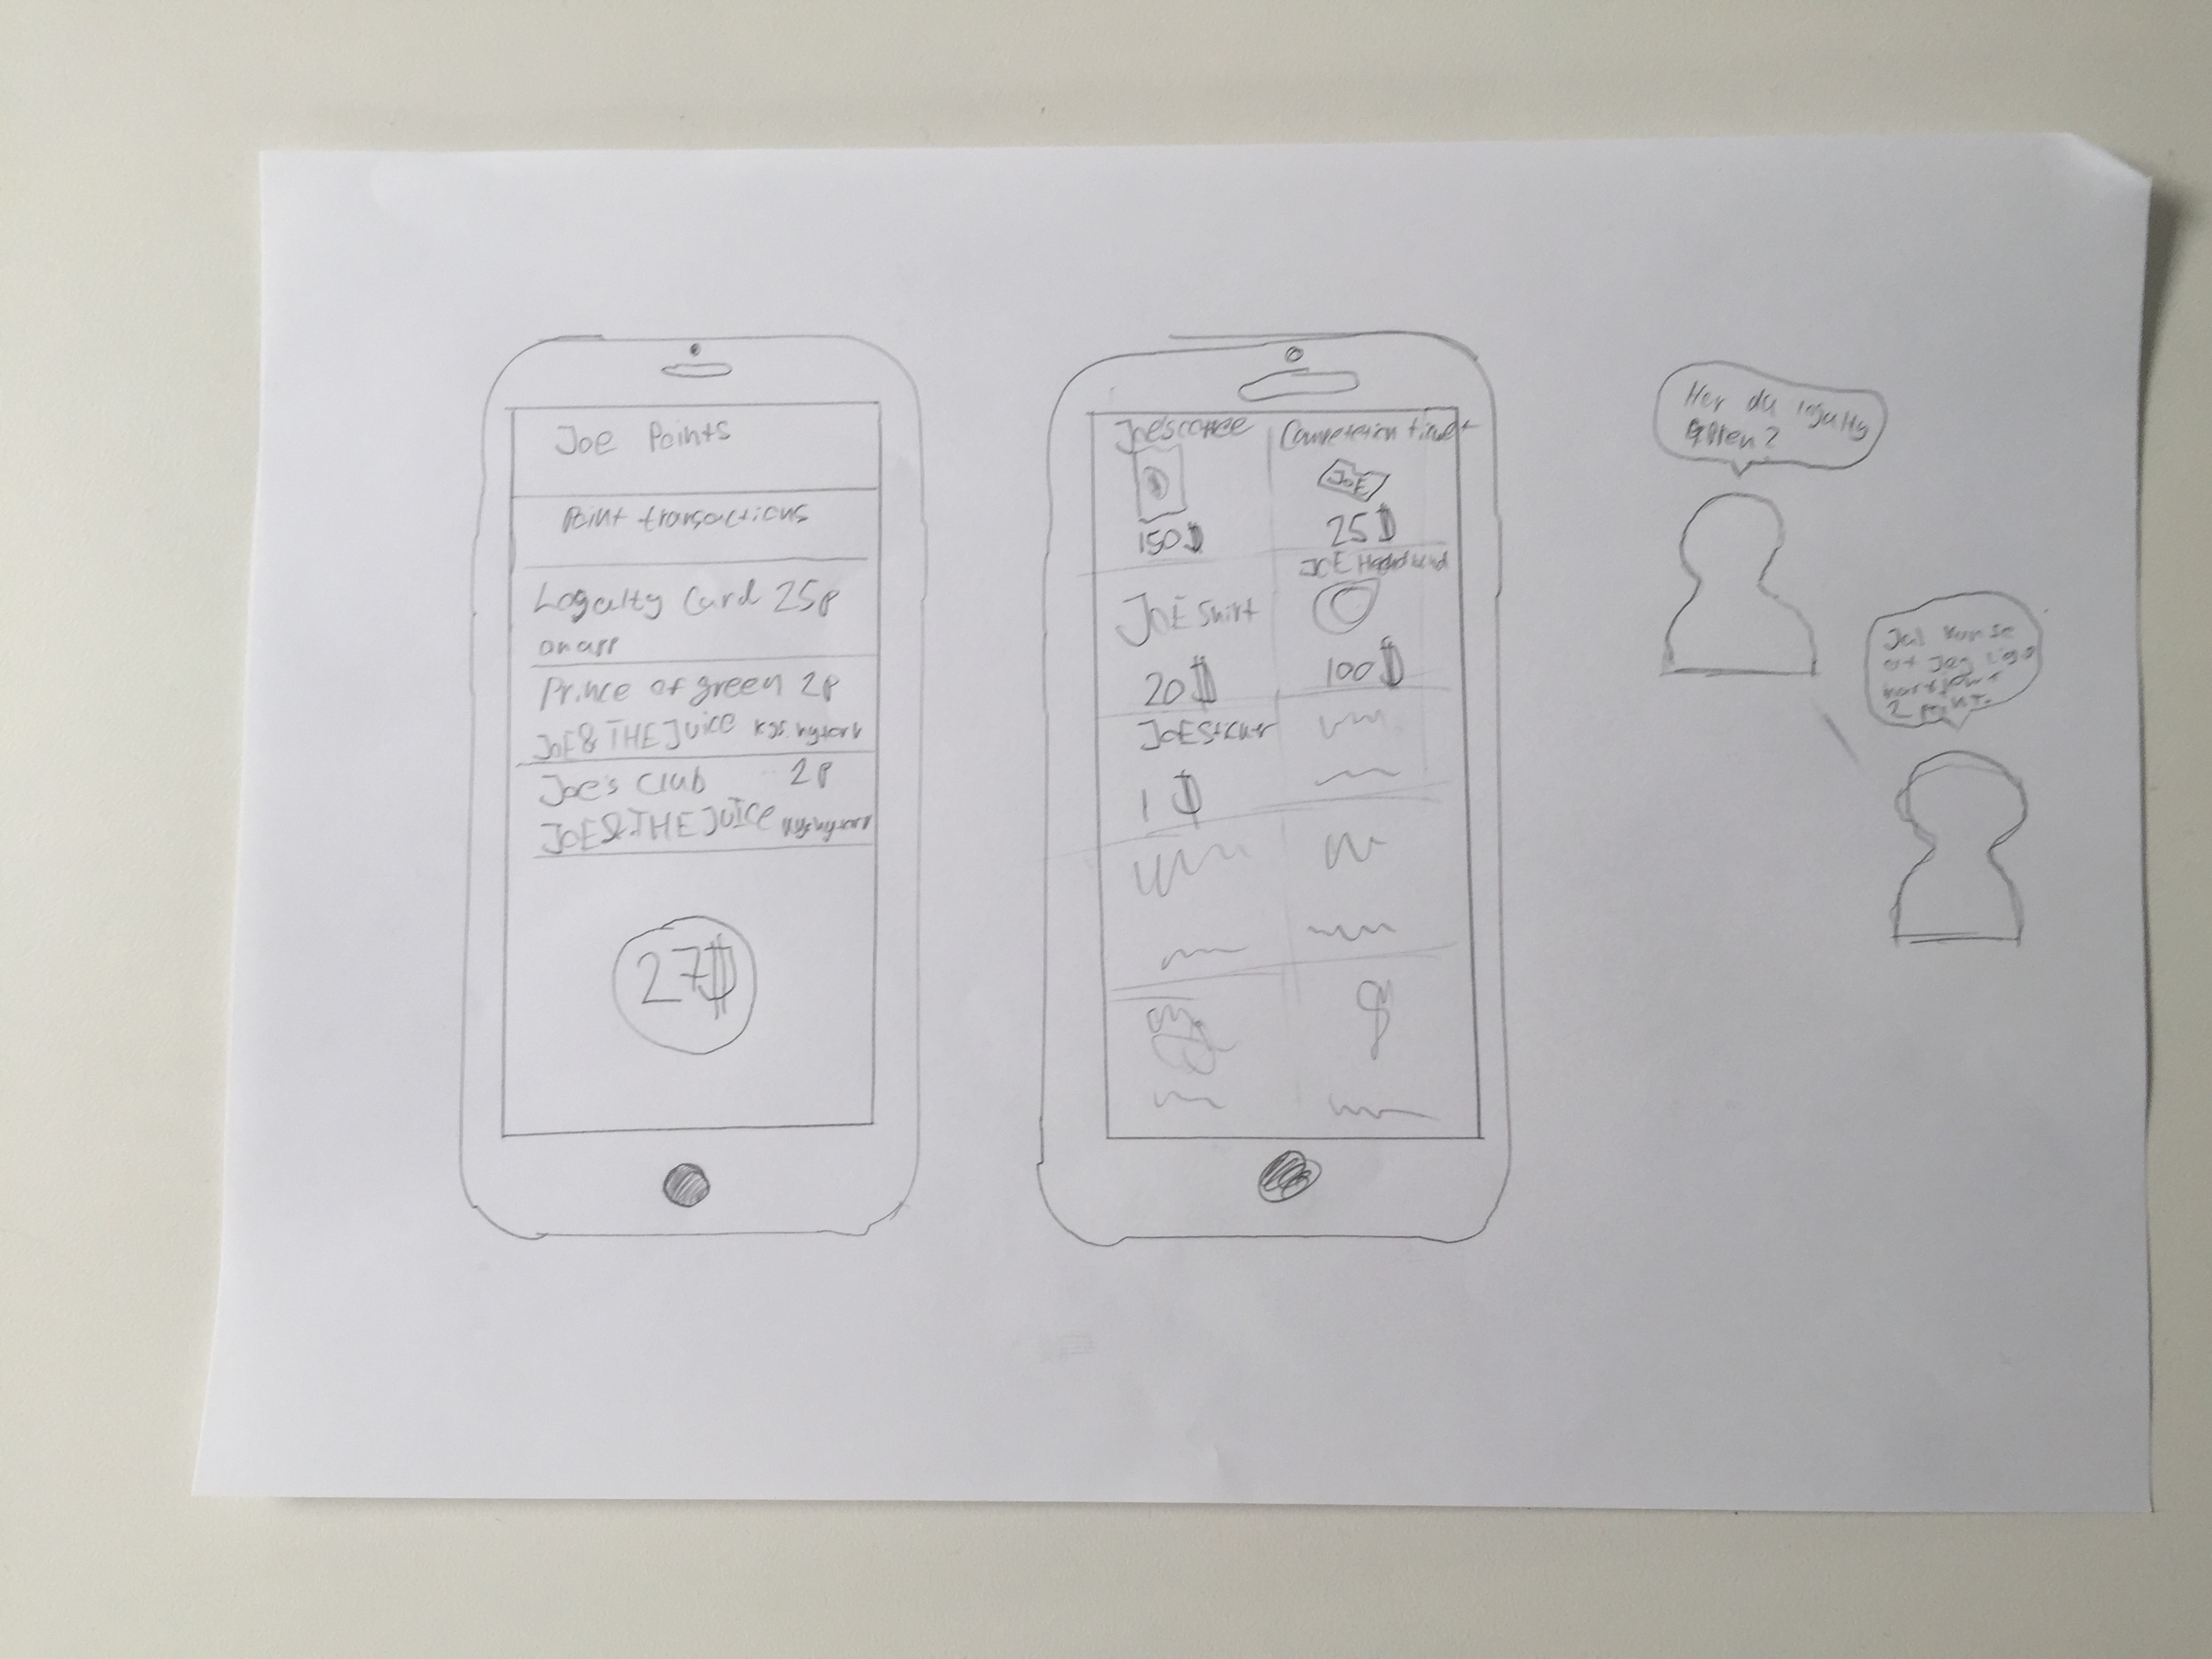 Joe Points
Point transactions
Loyalty Card 25p
on app
Prince of green 2p
JOE & THE JUICE kgs. nytorv
Joe's Club 2p
JOE & THE JUICE kgs. nytorv
27J
Joe's coffee
150J
Competetion ticket
JOE
25J
JOE Shirt
20J
JOE Headband
100J
JOE Sticker
1J
Har du loyalty
appen?
Ja! kan se
at jeg lige
har
2 point.